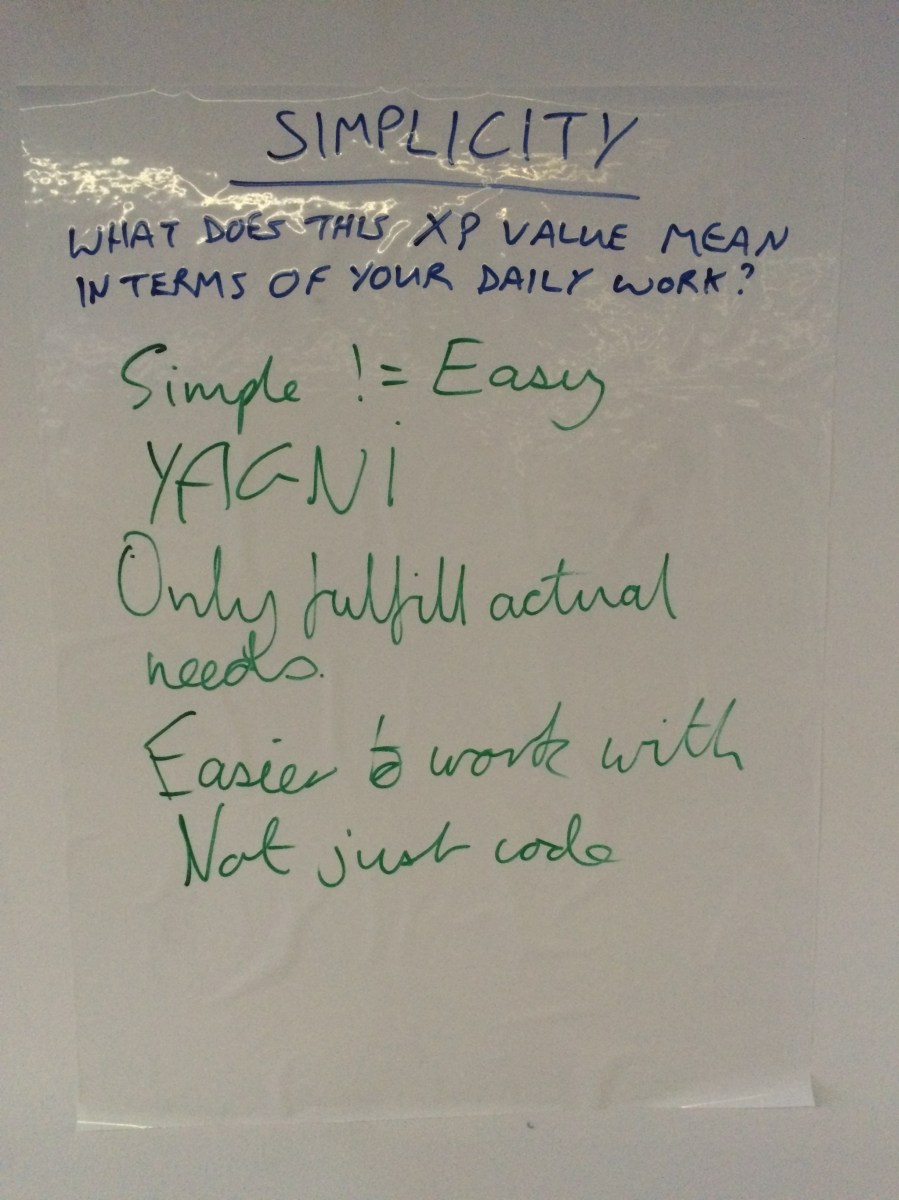 SIMPLICITY
WHAT DOES THIS XP VALUE MEAN
IN TERMS OF YOUR DAILY WORK?
Simple != Easy
YAGNi
Only fulfill actual
needs.
Easier to work with
Not just code